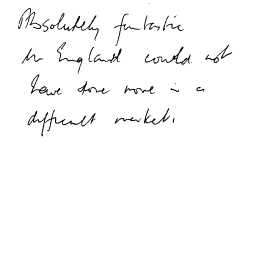 Absolutely fantastic
Mr England could not
have done more in a
difficult market.